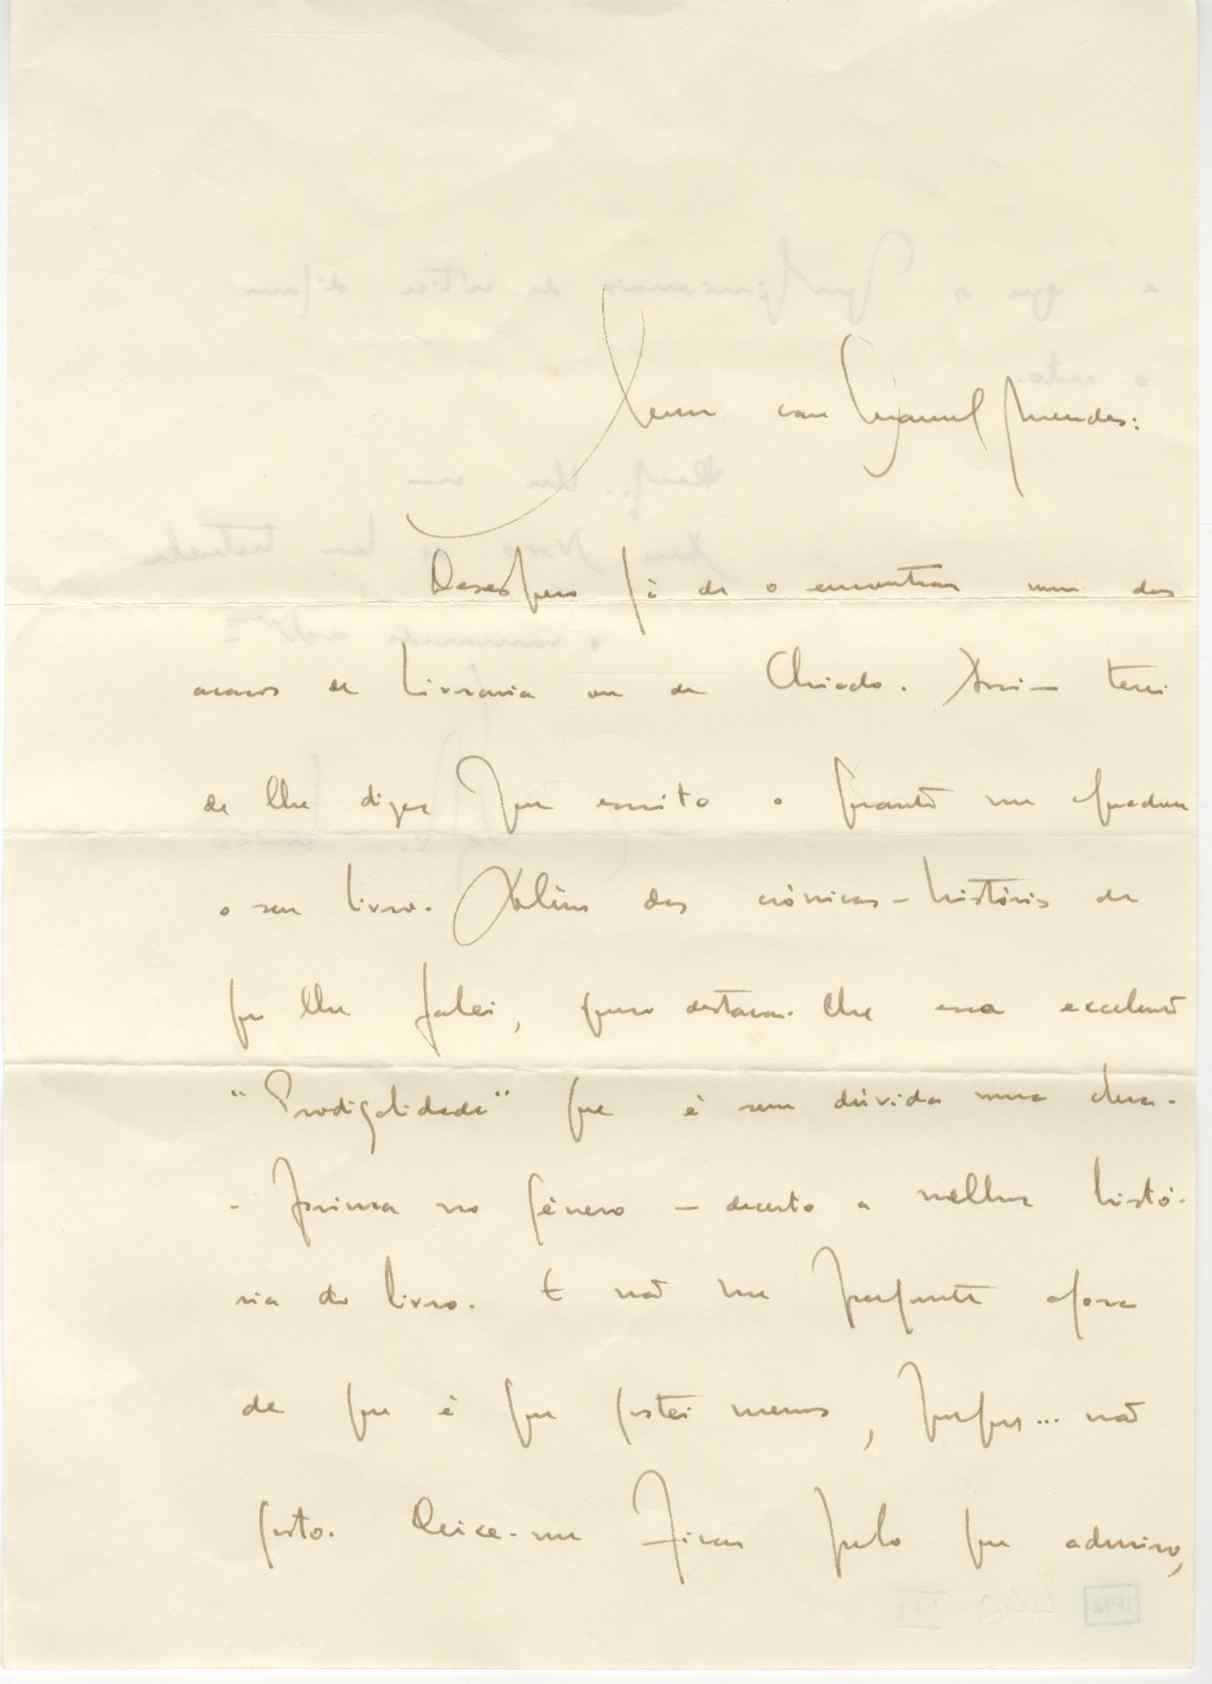 Meu caro Manuel Mendes:
Desespero já de o encontrar num dos
acasos de Livraria ou de Chiado. Assim terei
de lhe dizer por escrito o quanto me agradou
o seu livro. Além das crónicas-histórias de
que lhe falei, quero destacar-lhe essa excelente
"Prodigalidade" que é sem dúvida uma obra-
-prima no género — decerto a melhor histó-
ria do livro. E não me pergunte agora
de que é que gostei menos, porque... não
gosto. Deixe-me ficar pelo que admiro,